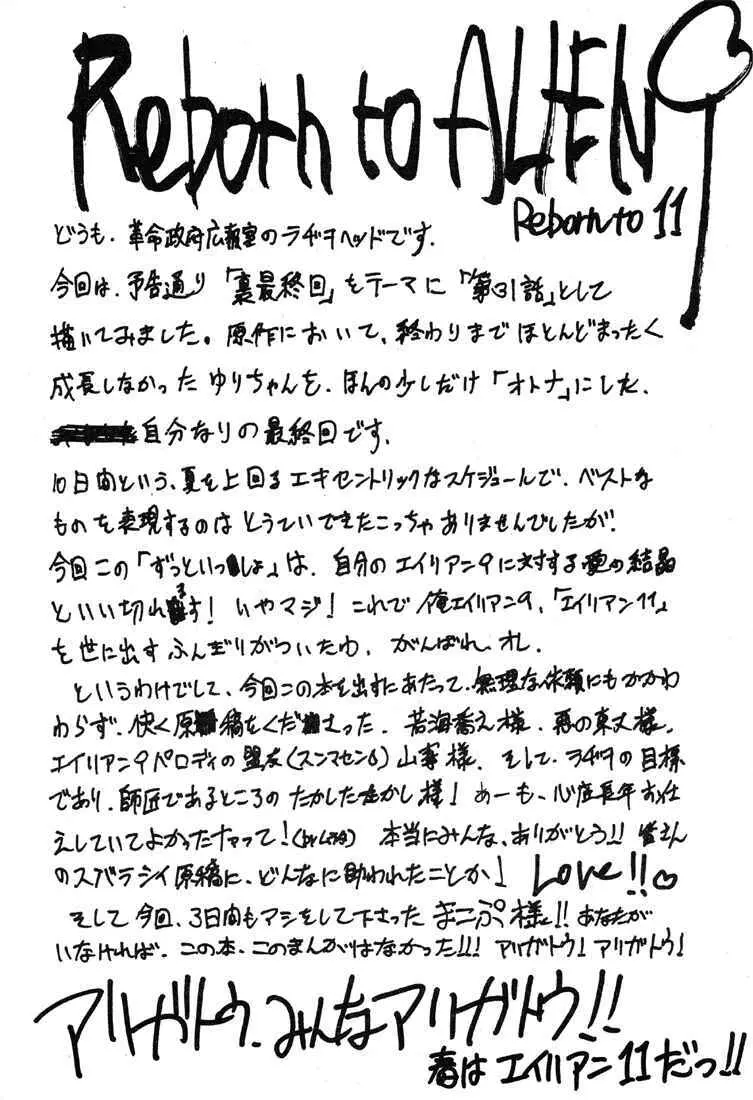 Reborn to ALIEN 9
Reborn to 11
どうも、革命政府広報室のラヂヲヘッドです。
今回は、予告通り「裏最終回」をテーマに「第31話」として
描いてみました。原作において、終わりまでほとんどまったく
成長しなかったゆりちゃんを、ほんの少しだけ「オトナ」にした、
自分なりの最終回です。
10日間という、夏を上回るエキセントリックなスケジュールで、ベストな
ものを表現するのはとうていできたこっちゃありませんでしたが、
今回この「ずっといっしょ」は、自分のエイリアン9に対する愛の結晶
といい切れます! いやマジ! これで俺エイリアン9、「エイリアン11」
を世に出すふんぎりがついたわ、がんばれ、オレ。
というわけでして、今回この本を出すにあたって、無理な依頼にもかかわ
わらず、快く原稿をくださった、若海 様、悪の東丈様、
エイリアン9パロディの盟友(スンマセン) 様、そして、ラヂヲの目標
であり、師匠であるところのたかしたたかし様! あーも、心底長年お仕
えしていてよかったナァって! 本当にみんな、ありがとう!! 皆さん
のスバラシイ原稿に、どんなに助われたことか! Love!!♡
そして今回、3日間もアシをして下さった まこぷ様!! あなたが
いなければ、この本、このまんがはなかった!!! アリガトウ! アリガトウ!
アリガトウ、みんなアリガトウ!!
春はエイリアン11だっ!!